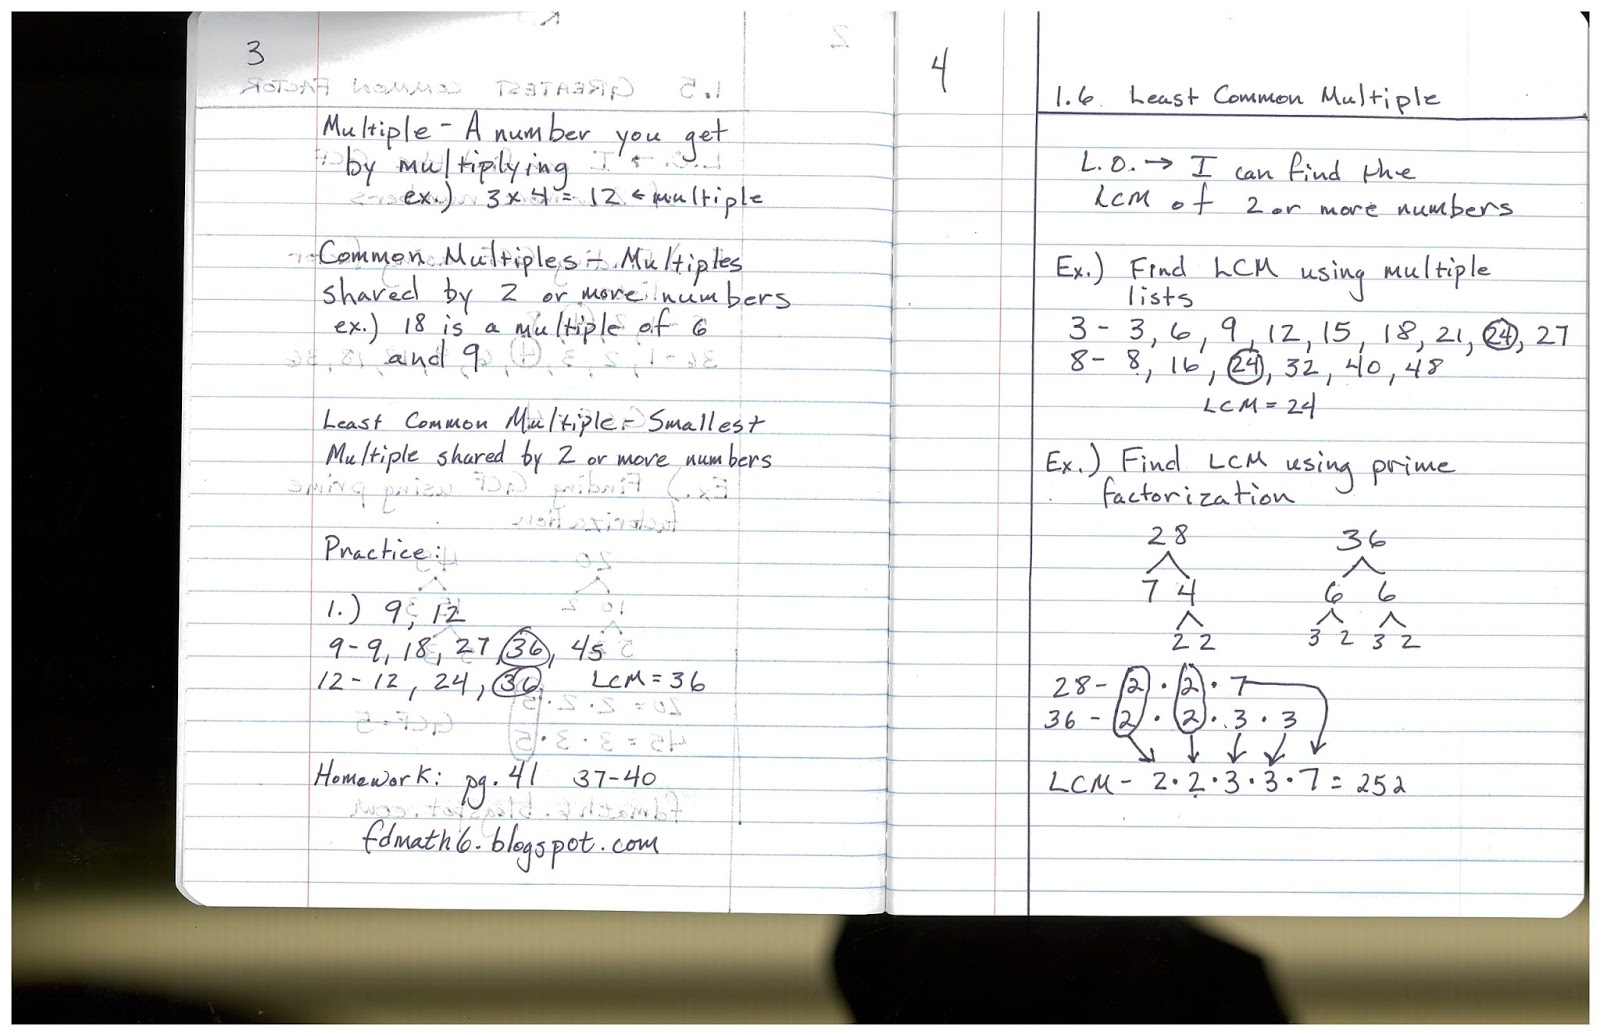 3
Multiple - A number you get
by multiplying
ex.) 3 x 4 = 12 ← multiple
Common Multiples - Multiples
shared by 2 or more numbers
ex.) 18 is a multiple of 6
and 9
Least Common Multiple - Smallest
Multiple shared by 2 or more numbers
Practice:
1.) 9, 12
9 - 9, 18, 27, 36, 45
12 - 12, 24, 36 LCM = 36
Homework: pg. 41 37-40
fdmath6.blogspot.com
4
1.6 Least Common Multiple
L.O. → I can find the
LCM of 2 or more numbers
Ex.) Find LCM using multiple
lists
3 - 3, 6, 9, 12, 15, 18, 21, 24, 27
8 - 8, 16, 24, 32, 40, 48
LCM = 24
Ex.) Find LCM using prime
factorization
28 36
7 4 6 6
2 2 3 2 3 2
28 - 2 · 2 · 7
36 - 2 · 2 · 3 · 3
LCM - 2 · 2 · 3 · 3 · 7 = 252